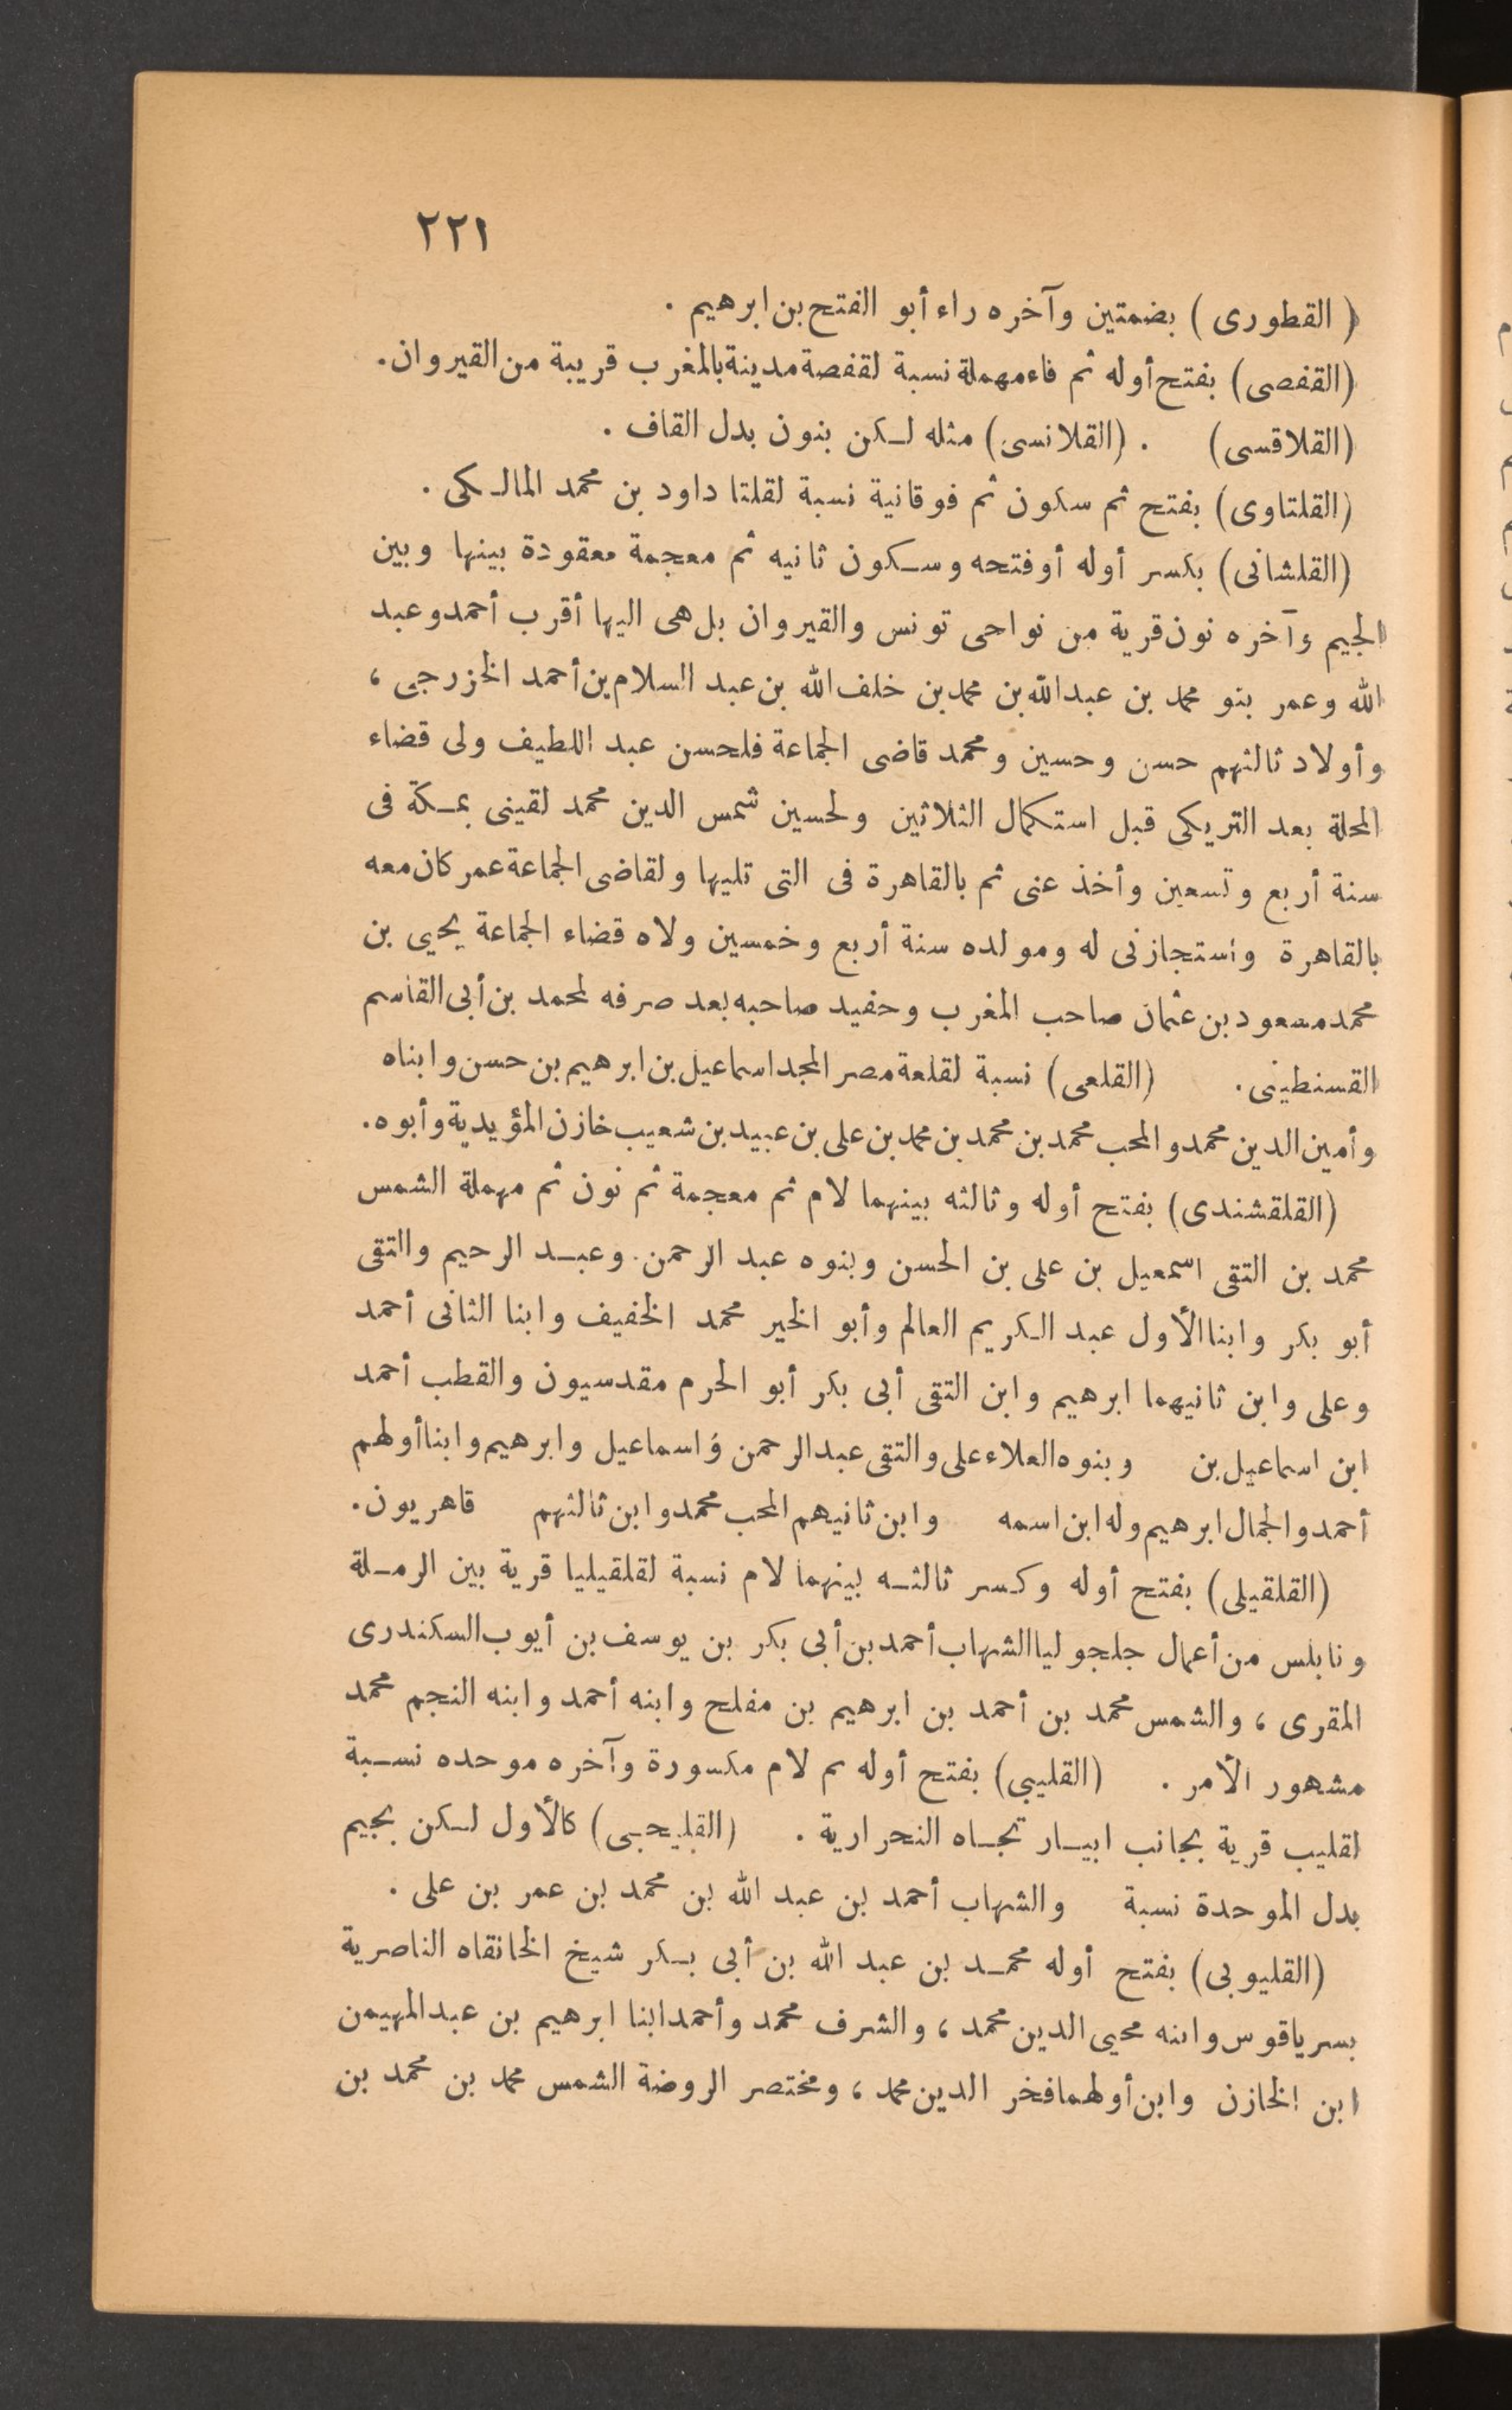 ٢٢١
( القطورى ) بضمتين وآخره راء أبو الفتح بن ابرهيم .
(القفصى) بفتح أوله ثم فاء مهملة نسبة لقفصة مدينة بالمغرب قريبة من القيروان.
(القلاقسى) . (القلانسى) مثله لكن بنون بدل القاف .
(القلتاوى) بفتح ثم سكون ثم فوقانية نسبة لقلتا داود بن محمد المالكى .
(القلشانى) بكسر أوله أوفتحه وسكون ثانيه ثم معجمة معقودة بينها وبين
الجيم وآخره نون قرية من نواحى تونس والقيروان بل هى اليها أقرب أحمد وعبد
الله وعمر بنو محمد بن عبدالله بن محمد بن خلف الله بن عبد السلام بن أحمد الخزرجى ،
وأولاد ثالثهم حسن وحسين ومحمد قاضى الجماعة فلحسن عبد اللطيف ولى قضاء
المحلة بعد التريكى قبل استكمال الثلاثين ولحسين شمس الدين محمد لقينى بمكة فى
سنة أربع وتسعين وأخذ عنى ثم بالقاهرة فى التى تليها ولقاضى الجماعة عمر كان معه
بالقاهرة واستجازنى له ومولده سنة أربع وخمسين ولاه قضاء الجماعة يحيى بن
محمد مسعود بن عثمان صاحب المغرب وحفيد صاحبه بعد صرفه لمحمد بن أبى القاسم
القسنطينى . (القلعى) نسبة لقلعة مصر المجد اسماعيل بن ابرهيم بن حسن وابناه
وأمين الدين محمد والمحب محمد بن محمد بن محمد بن على بن عبيد بن شعيب خازن المؤيدية وأبوه.
(القلقشندى) بفتح أوله وثالثه بينهما لام ثم معجمة ثم نون ثم مهملة الشمس
محمد بن التقى اسمعيل بن على بن الحسن وبنوه عبد الرحمن وعبد الرحيم والتقى
أبو بكر وابنا الأول عبد الكريم العالم وأبو الخير محمد الخفيف وابنا الثانى أحمد
وعلى وابن ثانيهما ابرهيم وابن التقى أبى بكر أبو الحرم مقدسيون والقطب أحمد
ابن اسماعيل بن وبنوه العلاء على والتقى عبدالرحمن واسماعيل وابرهيم وابنا أولهم
أحمد والجمال ابرهيم وله ابن اسمه وابن ثانيهم المحب محمد وابن ثالثهم قاهريون.
(القلقيلى) بفتح أوله وكسر ثالثه بينهما لام نسبة لقلقيليا قرية بين الرملة
ونابلس من أعمال جلجوليا الشهاب أحمد بن أبى بكر بن يوسف بن أيوب السكندرى
المقرى ، والشمس محمد بن أحمد بن ابرهيم بن مفلح وابنه أحمد وابنه النجم محمد
مشهور الأمر . (القليبى) بفتح أوله ثم لام مكسورة وآخره موحده نسبة
لقليب قرية بجانب ابيار تجاه النحرارية . (القليجى) كالأول لكن بجيم
بدل الموحدة نسبة والشهاب أحمد بن عبد الله بن محمد بن عمر بن على .
(القليوبى) بفتح أوله محمد بن عبد الله بن أبى بكر شيخ الخانقاه الناصرية
بسرياقوس وابنه محيى الدين محمد ، والشرف محمد وأحمد ابنا ابرهيم بن عبد المهيمن
ابن الخازن وابن أولهما فخر الدين محمد ، ومختصر الروضة الشمس محمد بن محمد بن